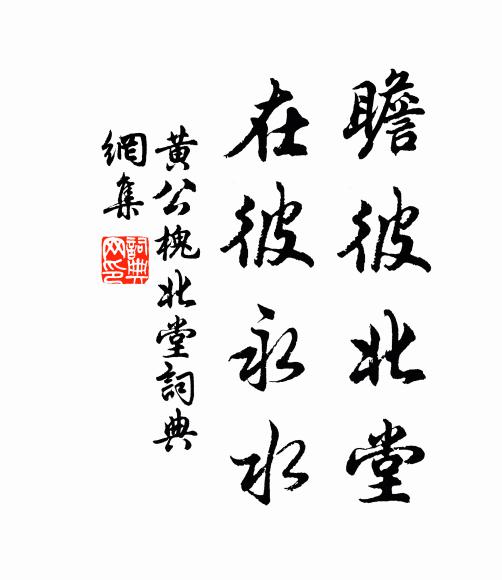 瞻彼北堂
在彼永水
黄公槐北堂詞典
網集
詞典
网印